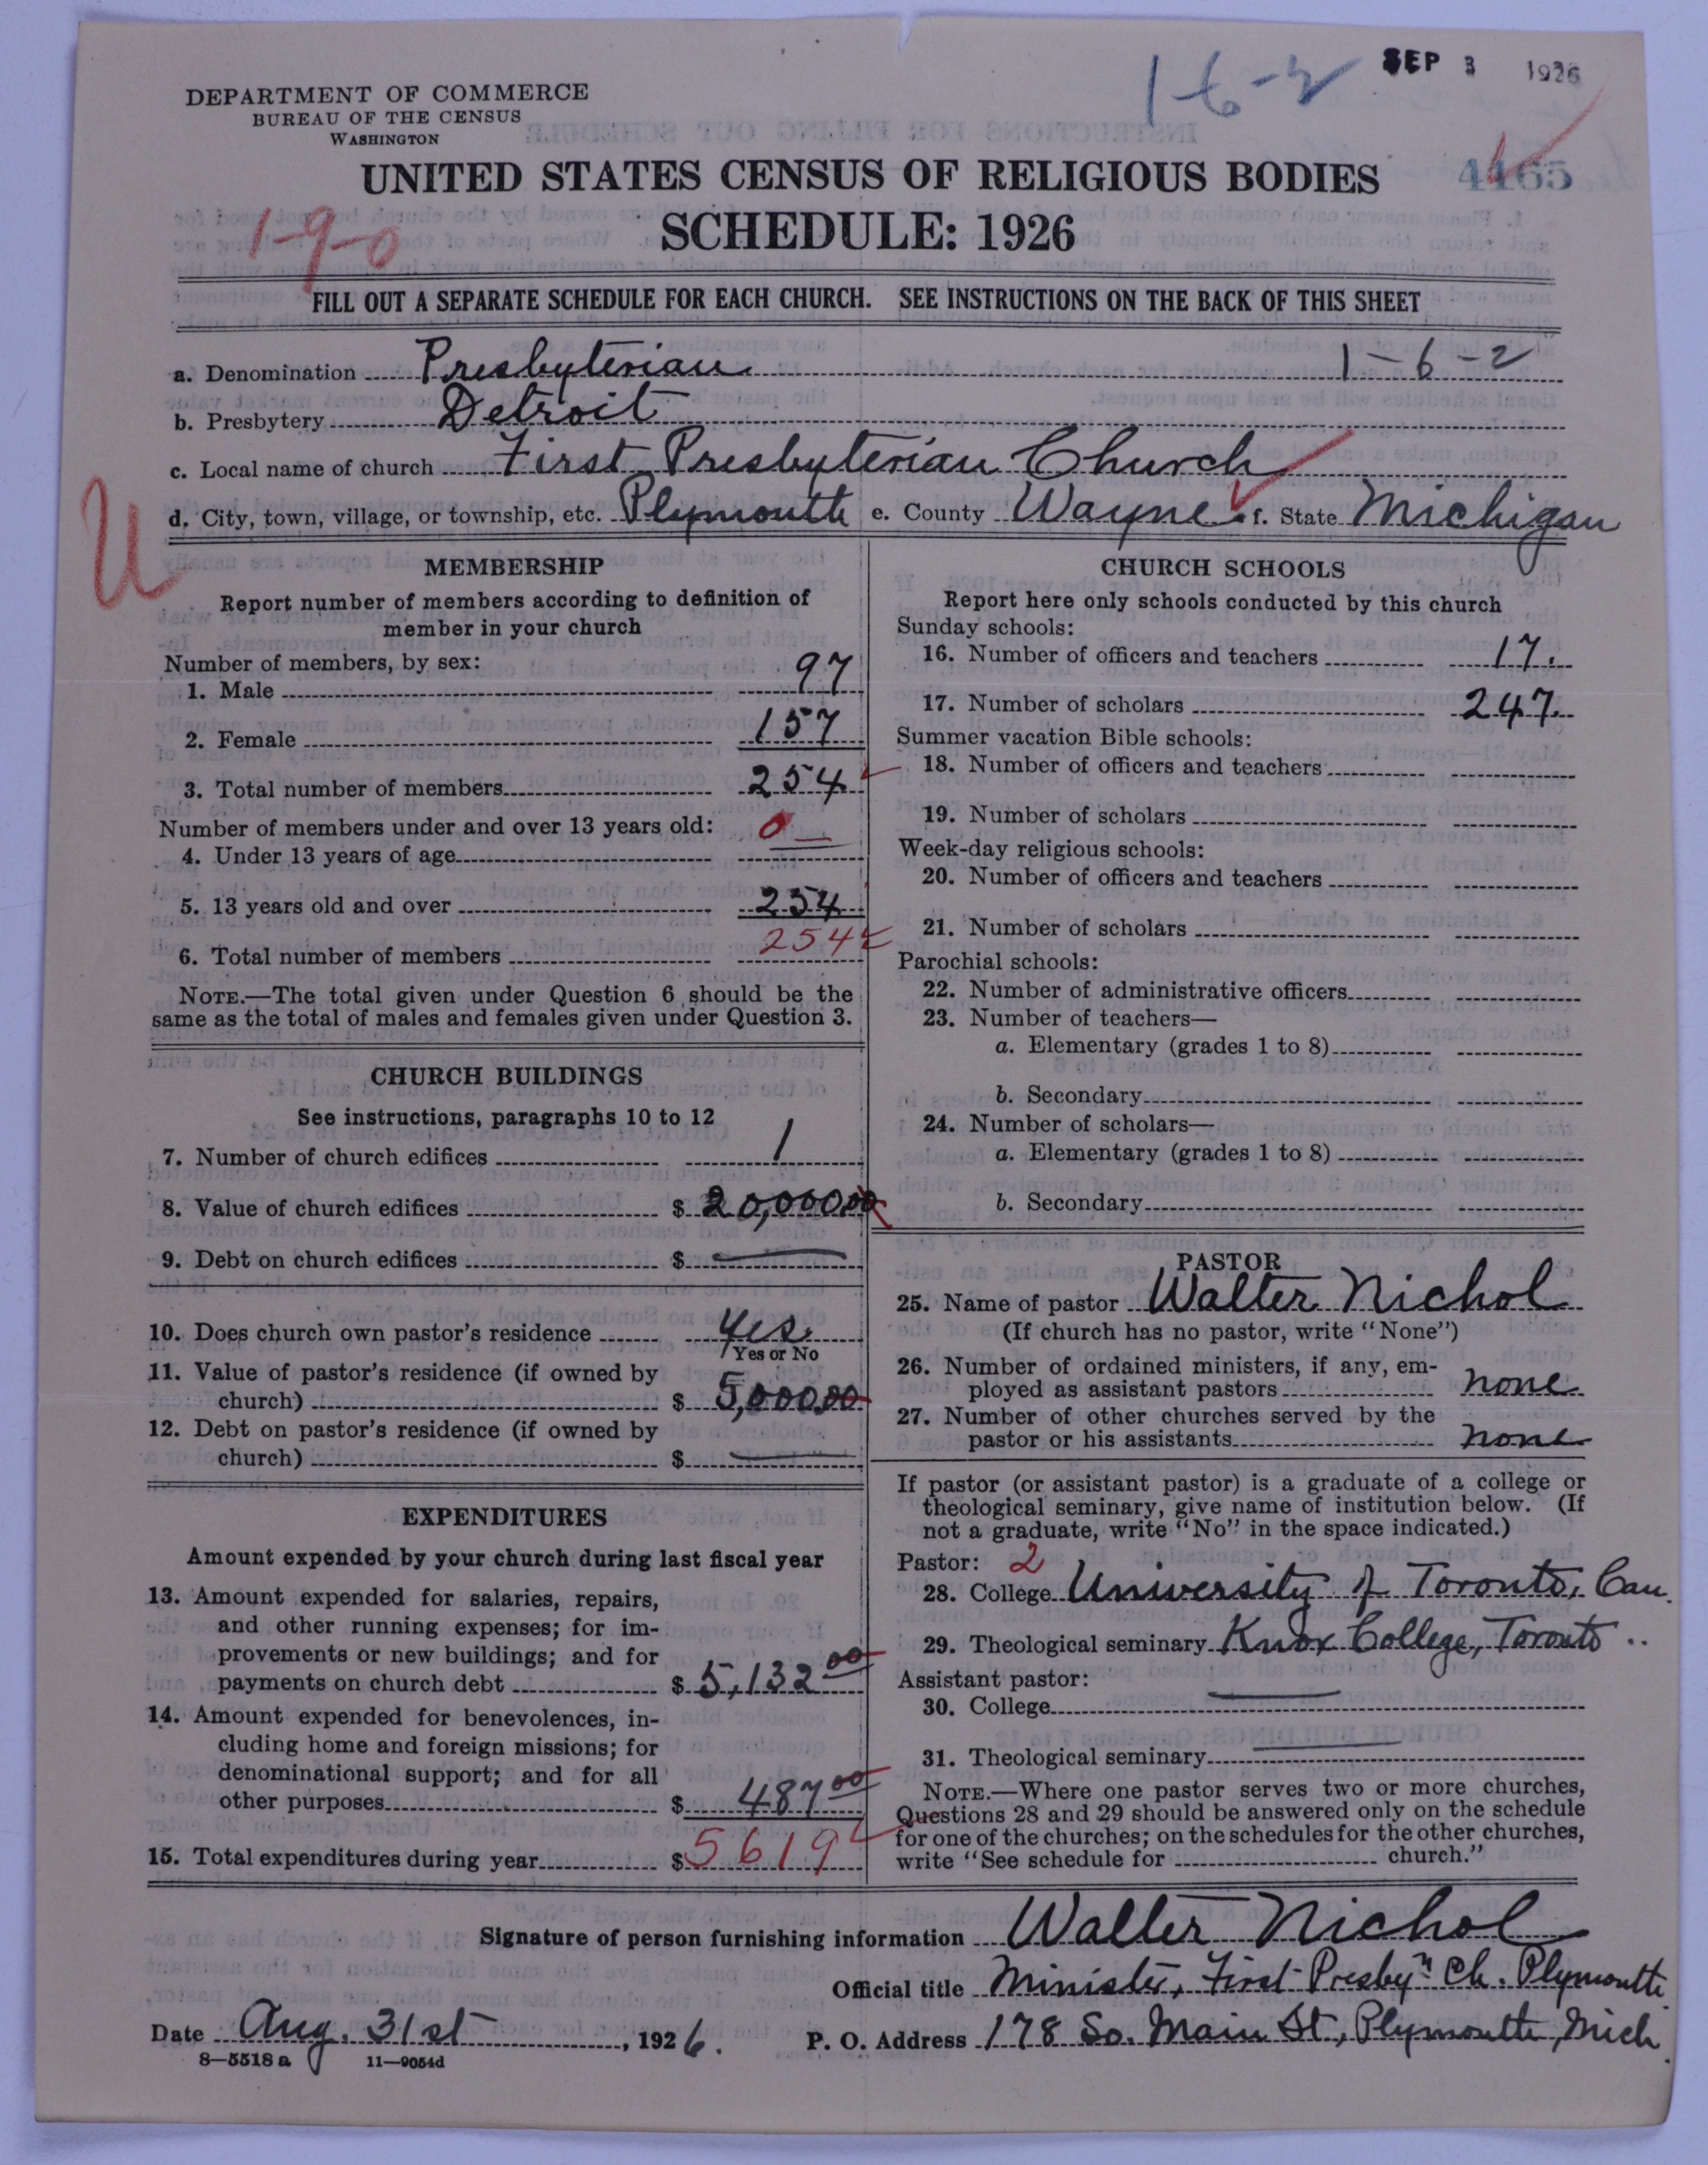 1-6-2
SEP 3 1926
DEPARTMENT OF COMMERCE
BUREAU OF THE CENSUS
WASHINGTON
4465
UNITED STATES CENSUS OF RELIGIOUS BODIES
SCHEDULE: 1926
1-9-0
FILL OUT A SEPARATE SCHEDULE FOR EACH CHURCH. SEE INSTRUCTIONS ON THE BACK OF THIS SHEET
a. Denomination Presbyterian 1-6-2
b. Presbytery Detroit
c. Local name of church First Presbyterian Church
d. City, town, village, or township, etc. Plymouth e. County Wayne f. State Michigan
U
MEMBERSHIP
Report number of members according to definition of
member in your church
Number of members, by sex:
1. Male 97
2. Female 157
3. Total number of members 254
Number of members under and over 13 years old:
4. Under 13 years of age 0 —
5. 13 years old and over 254
6. Total number of members 254
NOTE.—The total given under Question 6 should be the
same as the total of males and females given under Question 3.
CHURCH BUILDINGS
See instructions, paragraphs 10 to 12
7. Number of church edifices 1
8. Value of church edifices $ 20,000.00
9. Debt on church edifices $ —
10. Does church own pastor's residence Yes
Yes or No
11. Value of pastor's residence (if owned by
church) $ 5,000.00
12. Debt on pastor's residence (if owned by
church) $ —
EXPENDITURES
Amount expended by your church during last fiscal year
13. Amount expended for salaries, repairs,
and other running expenses; for im-
provements or new buildings; and for
payments on church debt $ 5,132 00
14. Amount expended for benevolences, in-
cluding home and foreign missions; for
denominational support; and for all
other purposes $ 487 00
15. Total expenditures during year $ 5619
CHURCH SCHOOLS
Report here only schools conducted by this church
Sunday schools:
16. Number of officers and teachers 17.
17. Number of scholars 247.
Summer vacation Bible schools:
18. Number of officers and teachers
19. Number of scholars
Week-day religious schools:
20. Number of officers and teachers
21. Number of scholars
Parochial schools:
22. Number of administrative officers
23. Number of teachers—
a. Elementary (grades 1 to 8)
b. Secondary
24. Number of scholars—
a. Elementary (grades 1 to 8)
b. Secondary
PASTOR
25. Name of pastor Walter Nichol
(If church has no pastor, write "None")
26. Number of ordained ministers, if any, em-
ployed as assistant pastors none
27. Number of other churches served by the
pastor or his assistants none
If pastor (or assistant pastor) is a graduate of a college or
theological seminary, give name of institution below. (If
not a graduate, write "No" in the space indicated.)
Pastor: 2
28. College University of Toronto, Can.
29. Theological seminary Knox College, Toronto
Assistant pastor:
30. College —
31. Theological seminary —
NOTE.—Where one pastor serves two or more churches,
Questions 28 and 29 should be answered only on the schedule
for one of the churches; on the schedules for the other churches,
write "See schedule for church."
Signature of person furnishing information Walter Nichol
Official title Minister, First Presbyn Ch. Plymouth
Date Aug. 31st, 1926. P. O. Address 178 So. Main St., Plymouth, Mich.
8—5518 a 11—9054d